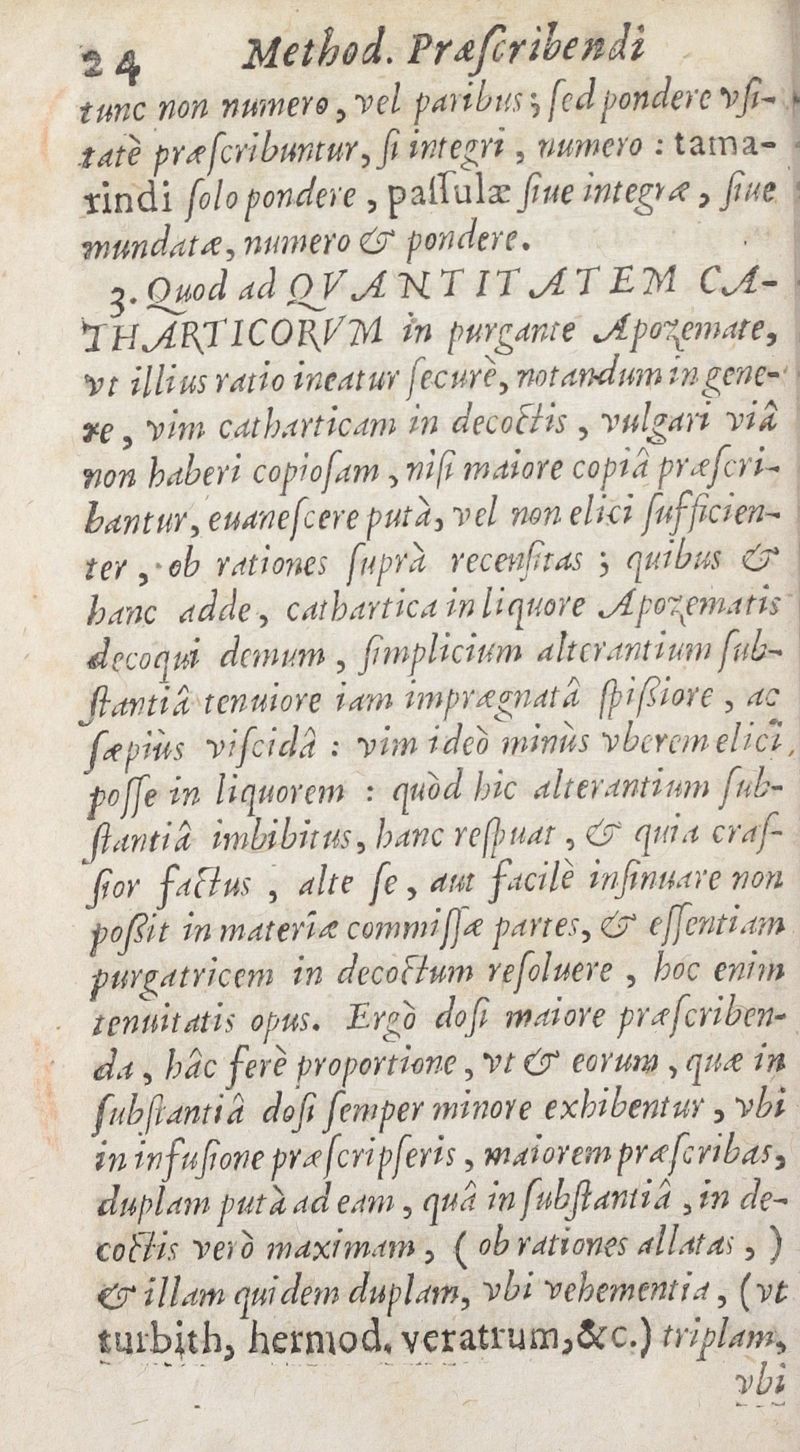 24 Method. Præſcribendi
tunc non numero, vel paribus; ſed pondere vſi-
tatè præſcribuntur, ſi integri, numero : tama-
rindi ſolo pondere, paſſulæ ſiue integræ, ſiue
mundatæ, numero & pondere.
3. Quod ad QVANTITATEM CA-
THARTICORVM in purgante Apozemate,
vt illius ratio ineatur ſecurè, notandum in gene-
re, vim catharticam in decoctis, vulgari viâ
non haberi copioſam, niſi maiore copiâ præſcri-
bantur, euaneſcere putà, vel non elici ſufficien-
ter, ob rationes ſuprà recenſitas ; quibus &
hanc adde, cathartica in liquore Apozematis
decoqui demum, ſimplicium alterantium ſub-
ſtantiâ tenuiore iam imprægnatâ ſpiſſiore, ac
ſæpiùs viſcidâ : vim ideò minùs vberem elici,
poſſe in liquorem : quòd hic alterantium ſub-
ſtantiâ imbibitus, hanc reſpuat, & quia craſ-
ſior factus, alte ſe, aut facilè inſinuare non
poſſit in materiæ commiſſæ partes, & eſſentiam
purgatricem in decoctum reſoluere, hoc enim
tenuitatis opus. Ergò doſi maiore præſcriben-
da, hâc ferè proportione, vt & eorum, quæ in
ſubſtantiâ doſi ſemper minore exhibentur, vbi
in infuſione præſcripſeris, maiorem præſcribas,
duplam putà ad eam, quâ in ſubſtantiâ, in de-
coctis verò maximam, ( ob rationes allatas, )
& illam quidem duplam, vbi vehementia, (vt
turbith, hermod. veratrum, &c.) triplam,
vbi